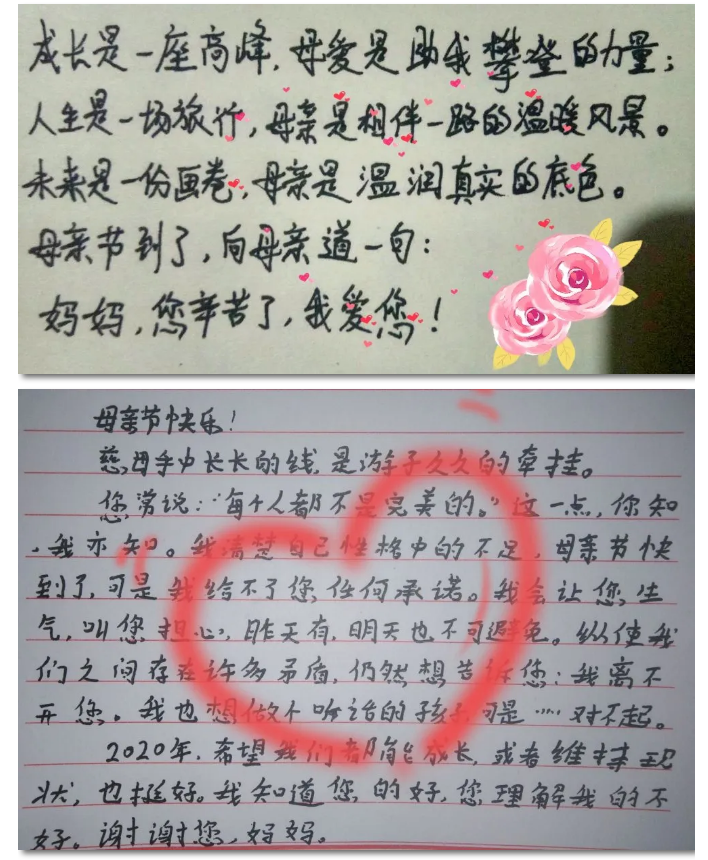 成长是一座高峰，母爱是助我攀登的力量；
人生是一场旅行，母亲是相伴一路的温暖风景。
未来是一份画卷，母亲是温润真实的底色。
母亲节到了，向母亲道一句：
妈妈，您辛苦了，我爱您！
母亲节快乐！
慈母手中长长的线，是游子久久的牵挂。
您常说：“每个人都不是完美的。”这一点，你知
，我亦知。我清楚自己性格中的不足，母亲节快
到了，可是我给不了您任何承诺。我会让您生
气，叫您担心，昨天有，明天也不可避免。纵使我
们之间存在许多矛盾，仍然想告诉您：我离不
开您。我也想做个听话的孩子，可是……对不起。
2020年，希望我们都能成长，或者维持现
状，也挺好。我知道您的好，您理解我的不
好。谢谢您，妈妈。